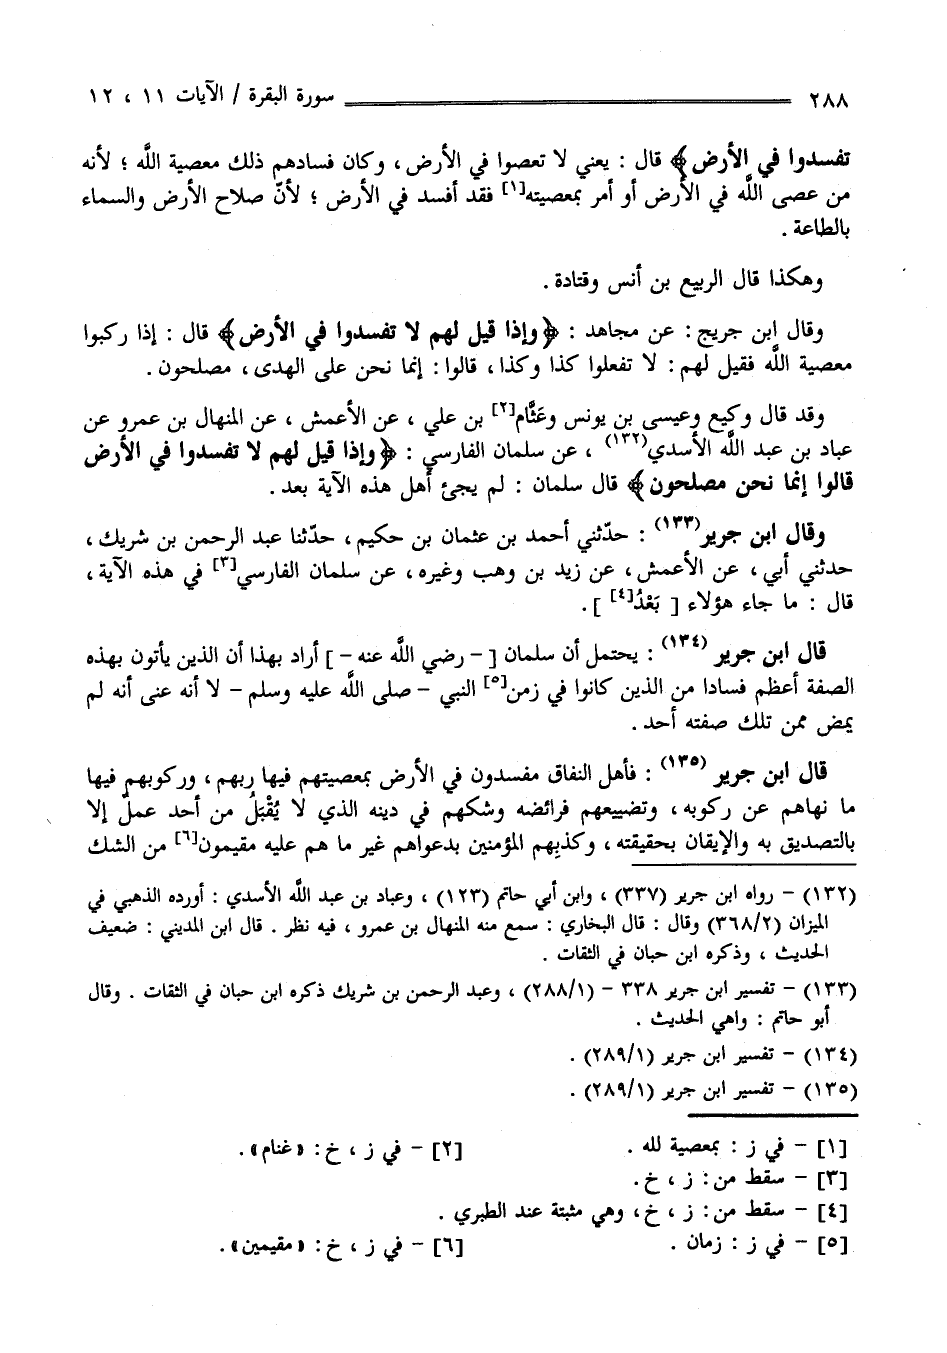 ٢٨٨ سورة البقرة / الآيات ١١ ، ١٢
تفسدوا في الأرض﴾ قال : يعني لا تعصوا في الأرض ، وكان فسادهم ذلك معصية اللَّه ؛ لأنه
من عصى اللَّه في الأرض أو أمر بمعصيته[١] فقد أفسد في الأرض ؛ لأنّ صلاح الأرض والسماء
بالطاعة .
وهكذا قال الربيع بن أنس وقتادة .
وقال ابن جريج : عن مجاهد : ﴿وإذا قيل لهم لا تفسدوا في الأرض﴾ قال : إذا ركبوا
معصية اللَّه فقيل لهم : لا تفعلوا كذا وكذا ، قالوا : إنما نحن على الهدى ، مصلحون .
وقد قال وكيع وعيسى بن يونس وعَثَّام[٢] بن علي ، عن الأعمش ، عن المنهال بن عمرو عن
عباد بن عبد اللَّه الأسدي(١٣٢) ، عن سلمان الفارسي : ﴿وإذا قيل لهم لا تفسدوا في الأرض
قالوا إنما نحن مصلحون﴾ قال سلمان : لم يجئ أهل هذه الآية بعد .
وقال ابن جرير(١٣٣) : حدّثني أحمد بن عثمان بن حكيم ، حدّثنا عبد الرحمن بن شريك ،
حدثني أبي ، عن الأعمش ، عن زيد بن وهب وغيره ، عن سلمان الفارسي[٣] في هذه الآية ،
قال : ما جاء هؤلاء [ بَعْدُ[٤] ] .
قال ابن جرير (١٣٤) : يحتمل أن سلمان [ – رضي اللَّه عنه – ] أراد بهذا أن الذين يأتون بهذه
الصفة أعظم فسادا من الذين كانوا في زمن[٥] النبي – صلى اللَّه عليه وسلم – لا أنه عنى أنه لم
يمض ممن تلك صفته أحد .
قال ابن جرير (١٣٥) : فأهل النفاق مفسدون في الأرض بمعصيتهم فيها ربهم ، وركوبهم فيها
ما نهاهم عن ركوبه ، وتضييعهم فرائضه وشكهم في دينه الذي لا يُقْبَلُ من أحد عملٌ إلا
بالتصديق به والإيقان بحقيقته ، وكذبِهم المؤمنين بدعواهم غير ما هم عليه مقيمون[٦] من الشك
(١٣٢) – رواه ابن جرير (٣٣٧) ، وابن أبي حاتم (١٢٣) ، وعباد بن عبد اللَّه الأسدي : أورده الذهبي في
الميزان (٣٦٨/٢) وقال : قال البخاري : سمع منه المنهال بن عمرو ، فيه نظر . قال ابن المديني : ضعيف
الحديث ، وذكره ابن حبان في الثقات .
(١٣٣) – تفسير ابن جرير ٣٣٨ – (٢٨٨/١) ، وعبد الرحمن بن شريك ذكره ابن حبان في الثقات . وقال
أبو حاتم : واهي الحديث .
(١٣٤) – تفسير ابن جرير (٢٨٩/١) .
(١٣٥) – تفسير ابن جرير (٢٨٩/١) .
[١] – في ز : بمعصية لله . [٢] – في ز ، خ : «غنام» .
[٣] – سقط من : ز ، خ .
[٤] – سقط من : ز ، خ ، وهي مثبتة عند الطبري .
[٥] – في ز : زمان . [٦] – في ز ، خ : «مقيمين» .